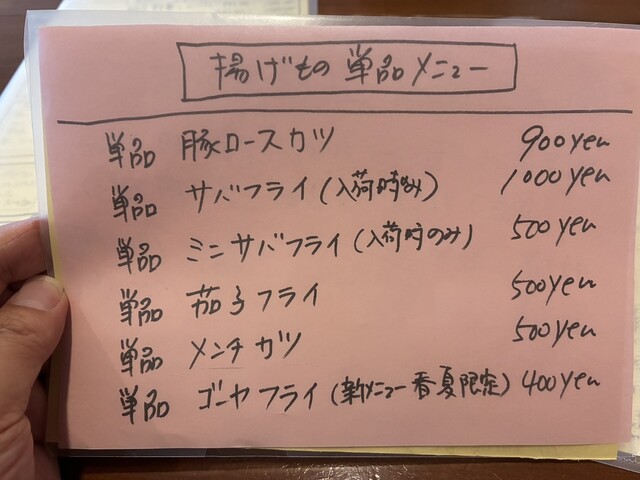 揚げもの 単品メニュー
単品 豚ロースカツ 900yen
単品 サバフライ(入荷時のみ) 1000yen
単品 ミニサバフライ(入荷時のみ) 500yen
単品 茄子フライ 500yen
単品 メンチカツ 500yen
単品 ゴーヤフライ(新メニュー春夏限定) 400yen